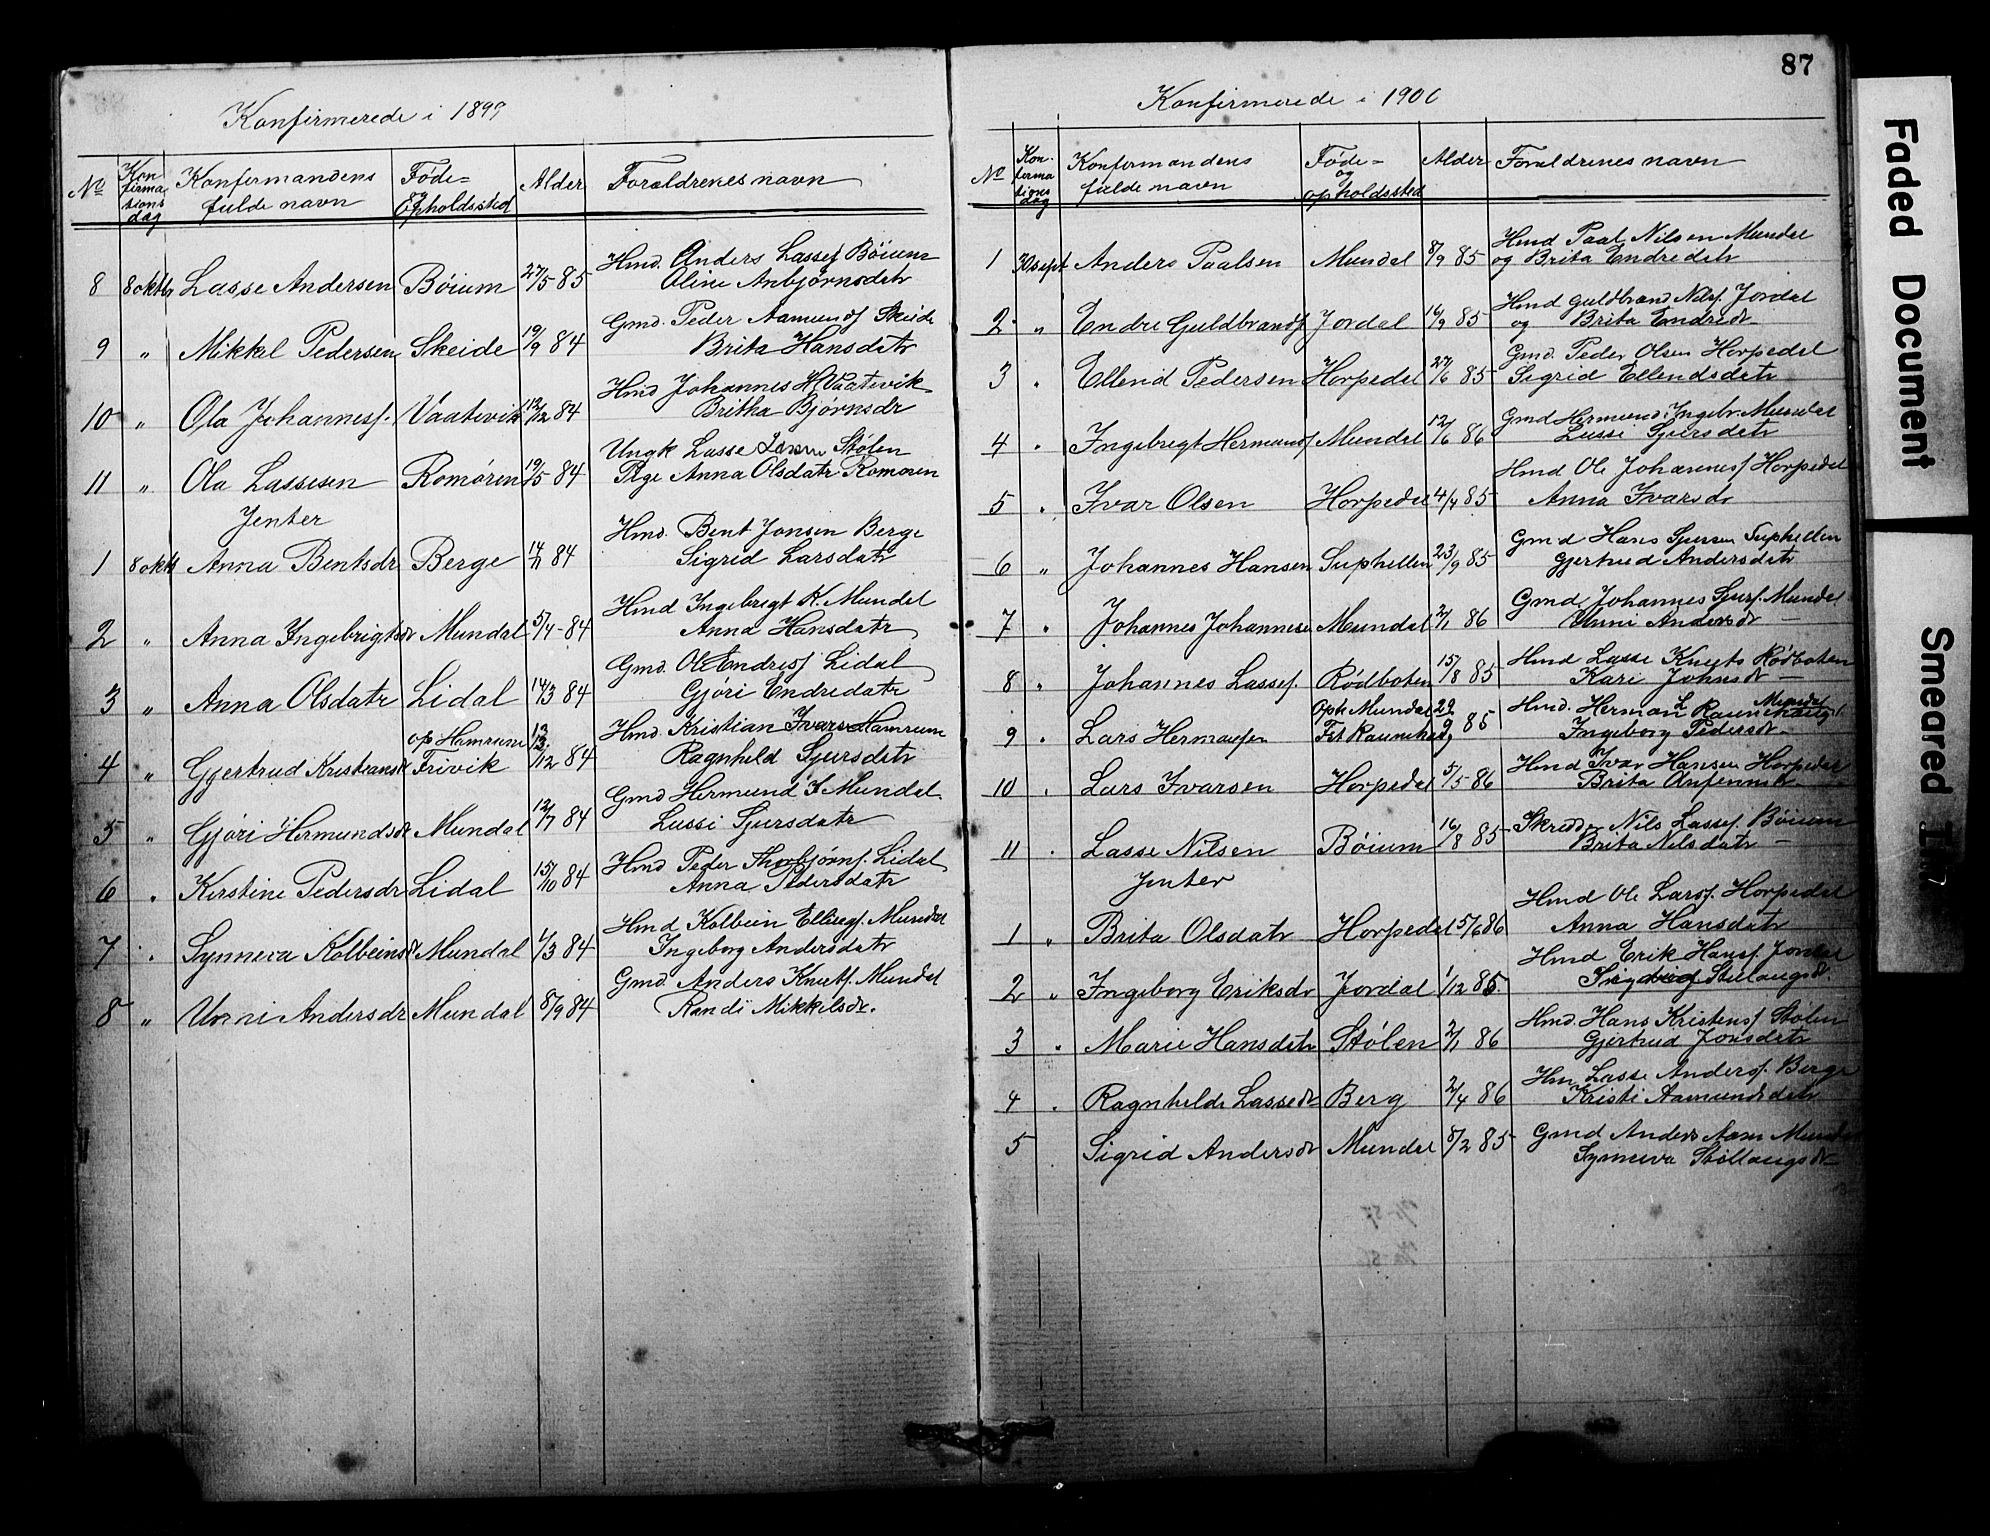 87
Konfirmerede i 1899
No Kon firma tions dag Konfirmandens fulde navn Føde= Opholdssted Alder Forældrenes navn
8 8 oktb Lasse Andersen Bøium 27/5 85 Hmd. Anders Lassesf Bøium
Oline Anbjørnsdatr
9 " Mikkel Pedersen Skeide 19/9 84 Gmd. Peder Aamundsf Skeide
Brita Hansdatr
10 " Ola Johannesf. Vaatevik 12/12 84 Hmd Johannes H. Vaatevik
Britha Bjørnsdr
11 " Ola Lassesen Romøren 19/5 84 Ungk Lasse Larsen Stølen
Pige Anna Olsdatr Romøren
Jenter
1 8 oktb Anna Bentsdr Berge 84 Hmd. Bent Jonsen Berge
Sigrid Larsdatr
2 " Anna Ingebrigtsdr Mundal 5/4 84 Hmd Ingebrigt K. Mundal
Anna Hansdatr
3 " Anna Olsdatr Lidal 14/3 84 Gmd. Ol Endresf Lidal
Gjøri Endredatr
4 " Gjertrud Kristiansdr op Hamrum Frivik 12 84 Hmd. Kristian Ivars Hamrum
Ragnhild Sjursdatr
5 " Gjøri Hermundsdr Mundal 12/7 84 Gmd Hermund I Mundal
Lussi Sjursdatr
6 " Kirstine Pedersdr Lidal 15/10 84 Hmd Peder Thorbjørnsf. Lidal
Anna Pedersdatr
7 " Synneva Kolbeinsdr Mundal 1/3 84 Hmd Kolbein Ellingsf. Mundal
Ingeborg Andersdatr
8 " Unni Andersdr Mundal 8/9 84 Gmd. Anders Knutsf. Mundal
Randi Mikkelsdr.
Konfirmerede i 1900
No Kon- firma tions dag Konfirmandens fulde navn Føde= og opholdssted Alder Forældrenes navn
1 30 sept Anders Paalsen Mundal 8/9 85 Hmd Paal Nilsen Mundal
og Brita Endredatr
2 " Endre Guldbrandsf Jordal 16/9 85 Hmd Guldbrand Nilsf. Jordal
og Brita Endredr
3 " Ellend Pedersen Horpedal 27/6 85 Gmd. Peder Olsen Horpedal
Sigrid Ellendsdatr
4 " Ingebrigt Hermundsf Mundal 12/6 86 Gmd Hermund Ingebr. Mundal
Lussi Sjursdatr
5 " Ivar Olsen Horpedal 4/4 85 Hmd Ole Johannesf Horpedal
Anna Ivarsdr
6 " Johannes Hansen Suphellen 23/9 85 Gmd Hans Sjursen Suphellen
Gjertrud Andersdatr
7 " Johannes Johannesen Mundal 2/1 86 Gmd Johannes Sjursf. Mundal
Unni Andersdr
8 " Johannes Lassef. Rødboten 15/8 85 Hmd Lasse Knuts Rødboten
Kari Johnsdr
9 " Lars Hermansen Oph Mundal 29/9 85 Hmd. Herman L Mundal
Ingeborg Pedersdr
10 " Lars Ivarsen Horpedal 5/5 86 Hmd Ivar Hansen Horpedal
Brita
11 " Lasse Nilsen Bøium 16/8 85 Skredder Nils Lassesf. Bøium
Brita Nilsdatr
Jenter
1 " Brita Olsdatr Horpedal 5/6 86 Hmd Ole Larsf. Horpedal
Anna Hansdatr
2 " Ingeborg Eriksdr Jordal 1/12 85. Hmd Erik Hansf. Jordal
3 " Marie Hansdatr Stølen 2/1 86 Hmd. Hans Kristensf Stølen
Gjertrud Jonsdatr
4 " Ragnhilde Lassedr Berg 2/4 86 Hm Lasse Andersf. Berge
Kristi Aamundsdatr
5 Sigrid Andersdr Mundal 8/2 85 Gmd Anders
Synneva Støllaugsdr
Faded Document
Smeared Ink